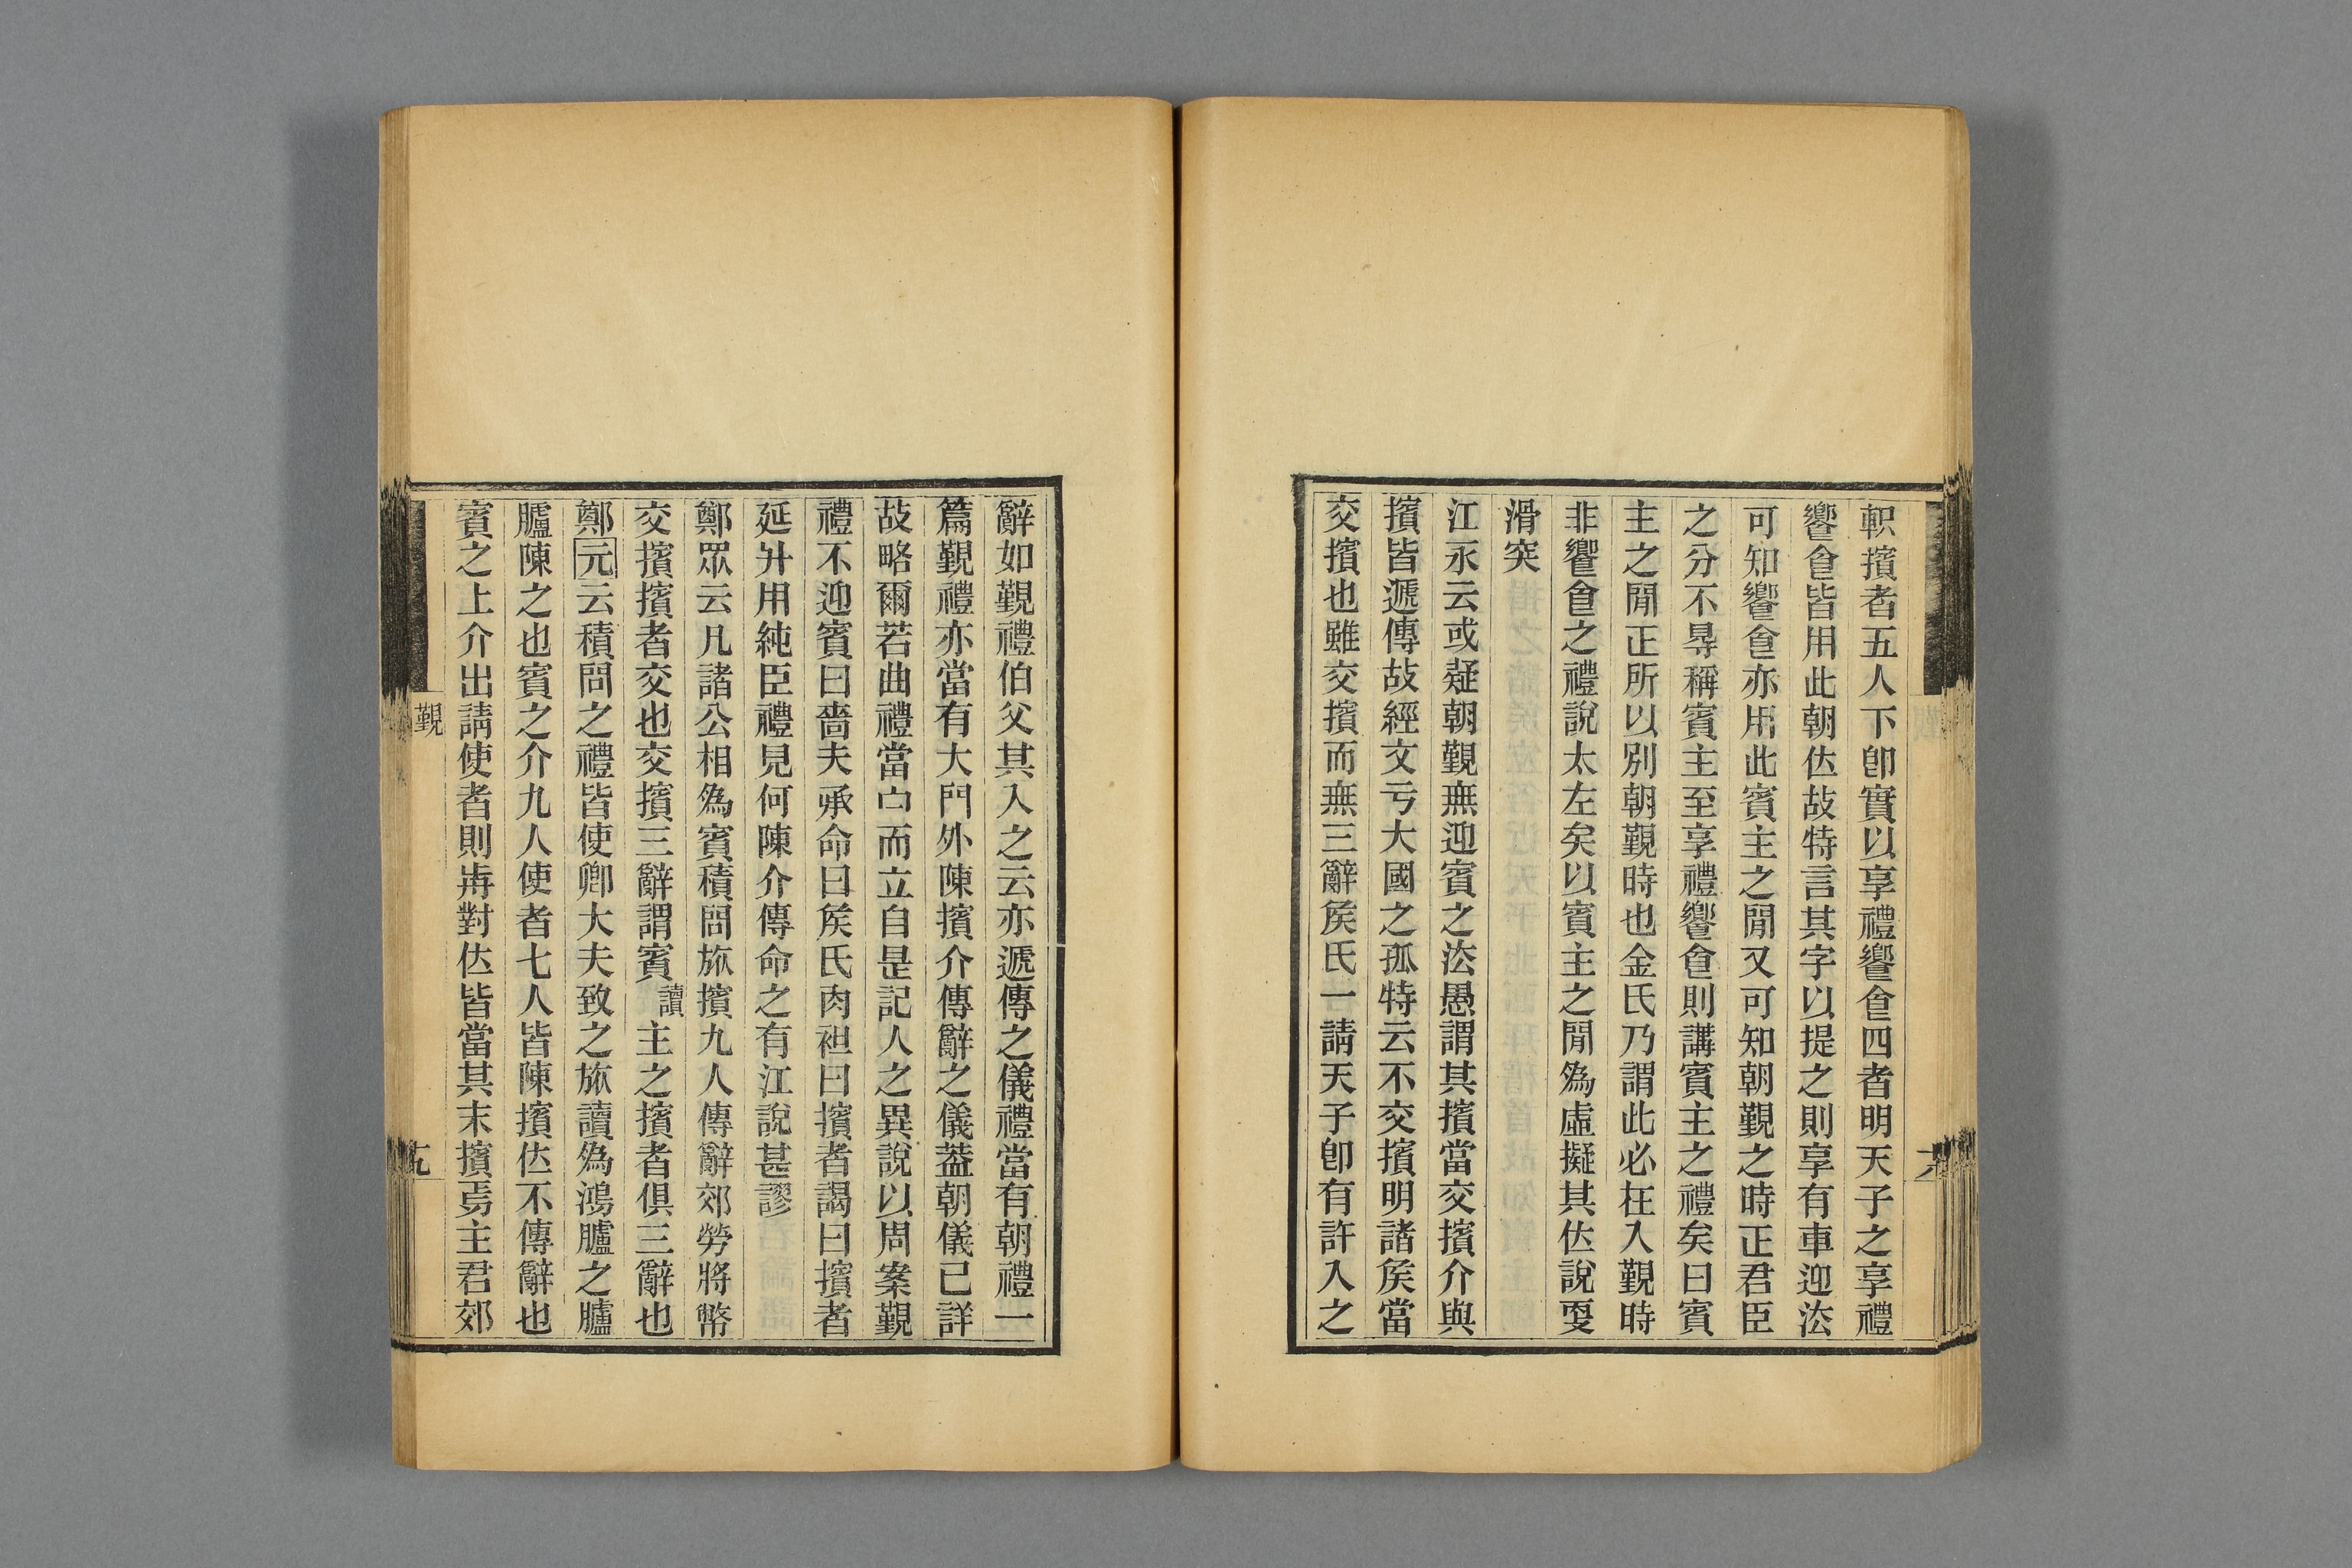 軹擯者五人下卽實以享禮饗𠊊四者明天子之享禮
饗𠊊皆用此朝㳒故特言其字以提之則享有車迎㳒
可知饗𠊊亦用此賓主之閒又可知朝覲之時正君臣
之分不㝵稱賓主至享禮饗𠊊則講賓主之禮矣曰賓
主之閒正所以別朝覲時也金氏乃謂此必在入覲時
非饗𠊊之禮說太左矣以賓主之閒為虛擬其㳒說㪅
滑突
江永云或疑朝覲無迎賓之㳒愚謂其擯當交擯介與
擯皆遞傳故經文亏大國之孤特云不交擯明諸矦當
交擯也雖交擯而無三辭矦氏一請天子卽有許入之
辭如覲禮伯父其入之云亦遞傳之儀禮當有朝禮一
篇覲禮亦當有大門外陳擯介傳辭之儀葢朝儀已詳
故略爾若曲禮當宁而立自是記人之異說以周案覲
禮不迎賓曰嗇夫承命曰矦氏肉袒曰擯者謁曰擯者
延升用純臣禮見何陳介傳命之有江說甚謬
鄭眾云凡諸公相為賓積問旅擯九人傳辭郊勞將幣
交擯擯者交也交擯三辭謂賓讀主之擯者俱三辭也
鄭元云積問之禮皆使卿大夫致之旅讀為鴻臚之臚
臚陳之也賓之介九人使者七人皆陳擯位不傳辭也
賓之上介出請使者則歬對位皆當其末擯焉主君郊
覲